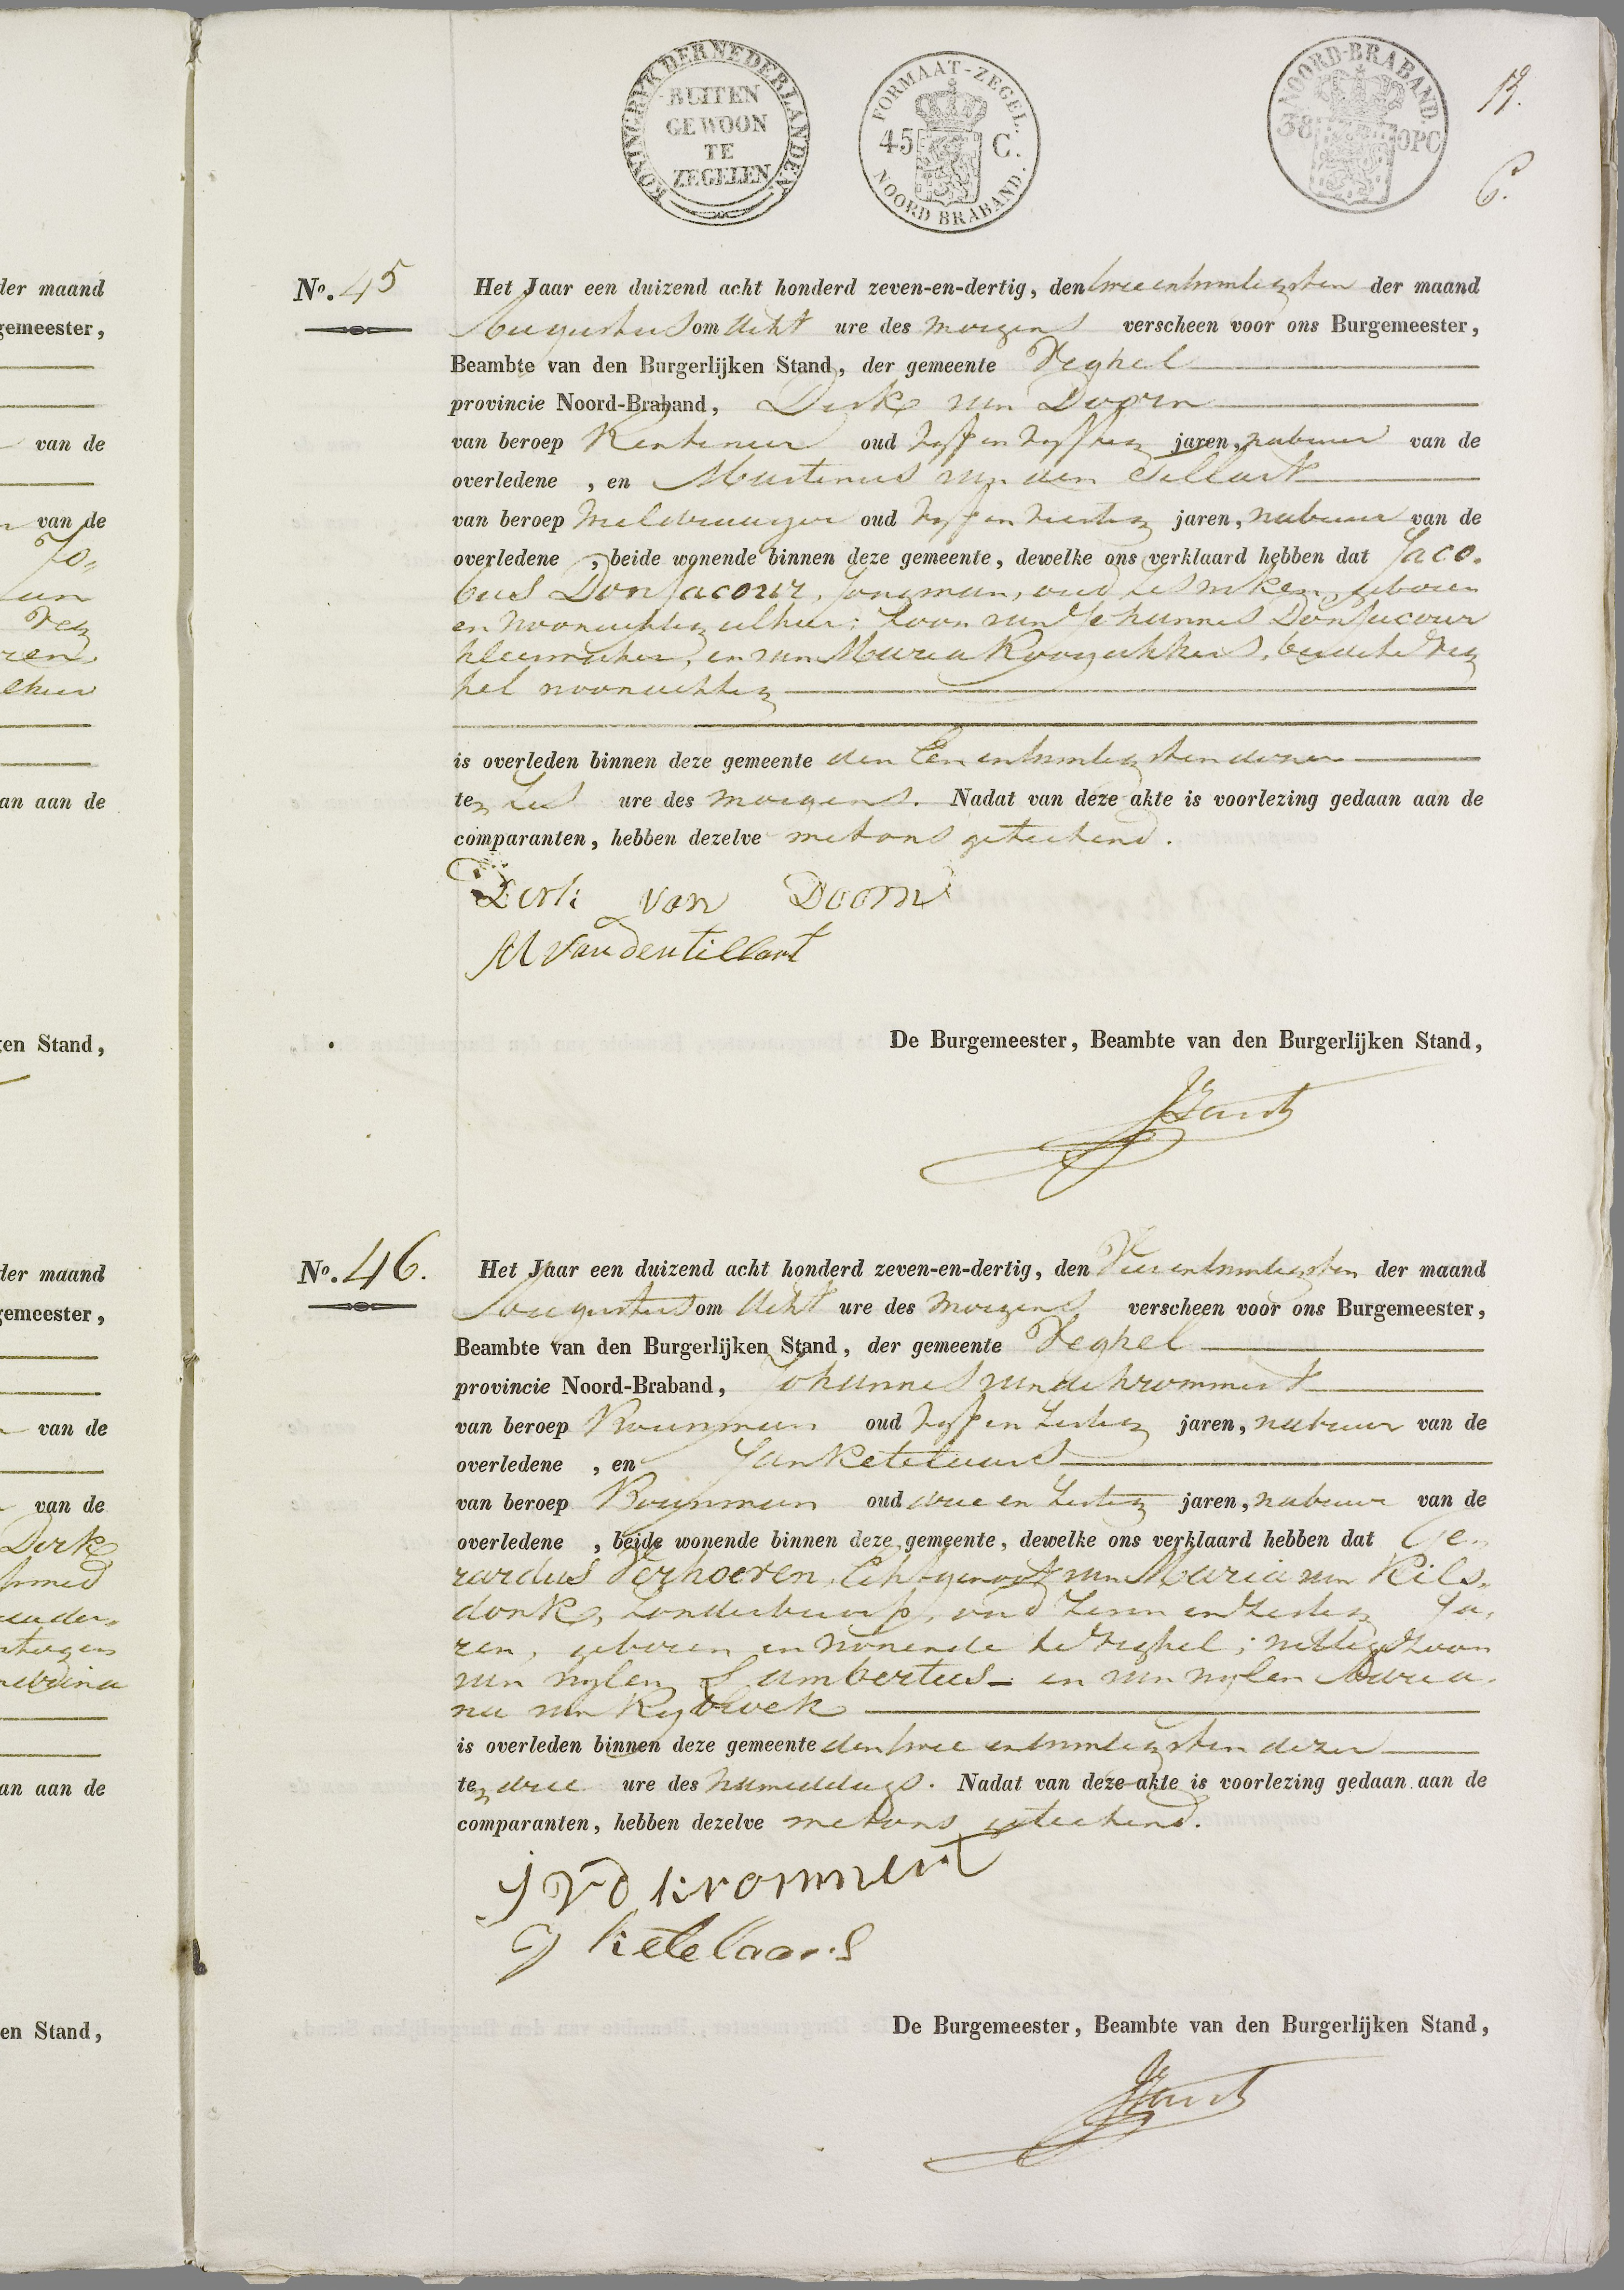 der maand
gemeester,
van de
van de
Jo=
van
Veg
ren
lhier
an aan de
en Stand,
der maand
gemeester,
van de
van de
Dirk
an aan de
en Stand,
KONINGRYK DER NEDERLANDEN
BUITEN
GEWOON
TE
ZEGELEN
FORMAAT-ZEGEL.
45 C.
NOORD BRABAND.
NOORD-BRABAND.
38 OPC
No. 45
Het Jaar een duizend acht honderd zeven-en-dertig, den twee en twintigsten der maand
Augustus om Acht ure des morgens verscheen voor ons Burgemeester,
Beambte van den Burgerlijken Stand, der gemeente Veghel
provincie Noord-Braband, Dirk van Doorn
van beroep Rentenier oud vyf en vyftig jaren, nabuur van de
overledene , en Martinus van den Tillart
van beroep oud vyf en veertig jaren, nabuur van de
overledene , beide wonende binnen deze gemeente, dewelke ons verklaard hebben dat Jaco=
bus Donjacour, jongman, oud zes weken, geboren
en woonachtig alhier; zoon van Johannes Donjacour
kleermaker, en van Maria Rooyakkers, beide te Veg
hel woonachtig
is overleden binnen deze gemeente den Een en twintigsten dezer
te zes ure des morgens. Nadat van deze akte is voorlezing gedaan aan de
comparanten, hebben dezelve met ons geteekend.
Dirk van Doorn
M van den tillart
De Burgemeester, Beambte van den Burgerlijken Stand,
No. 46.
Het Jaar een duizend acht honderd zeven-en-dertig, den Vier en twintigsten der maand
Augustus om Acht ure des morgens verscheen voor ons Burgemeester,
Beambte van den Burgerlijken Stand, der gemeente Veghel
provincie Noord-Braband, Johannes van de krommert
van beroep Bouwman oud vyf en zestig jaren, nabuur van de
overledene , en Jan Ketelaars
van beroep Bouwman oud drie en zestig jaren, nabuur van de
overledene , beide wonende binnen deze gemeente, dewelke ons verklaard hebben dat Ge=
rardus Verhoeven, Echtgenoot van Maria van Kils=
donk, zonder beroep, oud zeven en zestig Ja=
ren, geboren en wonende te Veghel; wettige zoon
van wylen Lambertus en van wylen Maria=
na van Rybroek
is overleden binnen deze gemeente den twee en twintigsten dezer
te drie ure des namiddags. Nadat van deze akte is voorlezing gedaan aan de
comparanten, hebben dezelve met ons geteekend.
J V d krommert
J ketelaars
De Burgemeester, Beambte van den Burgerlijken Stand,